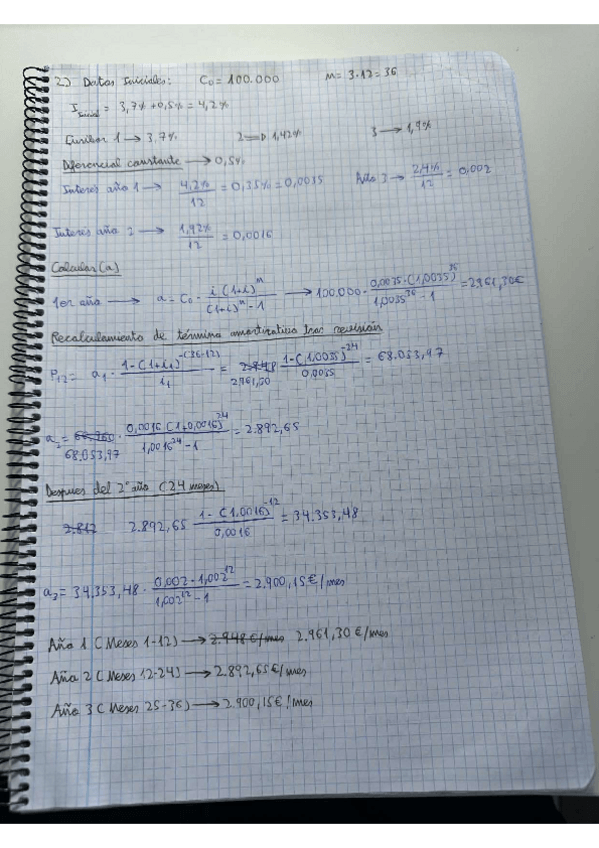 2.) Datos Iniciales: C₀ = 100.000 m = 3·12 = 36
I Inicial = 3,7% + 0,5% = 4,2%
Euribor 1 → 3,7% 2 ⇒ 1,42% 3 → 1,9%
Diferencial constante → 0,5%
Interés año 1 → 4,2%/12 = 0,35% = 0,0035 Año 3 → 2,4%/12 = 0,002
Interés año 2 → 1,92%/12 = 0,0016
Calcular (a)
1er año → a = C₀ · i(1+i)^n / (1+i)^n - 1 → 100.000 · 0,0035·(1,0035)^36 / 1,0035^36 - 1 = 2961,30€
Recalculamiento de término amortizativo tras revisión
P₁₂ = a₁ · 1-(1+i₁)^-(36-12) / i₁ = 2.961,30 · 1-(1,0035)^-24 / 0,0035 = 68.053,97
a₂ = 68.053,97 · 0,0016(1+0,0016)^24 / 1,0016^24 - 1 = 2.892,65
Despues del 2º año (24 meses)
2.892,65 1-(1,0016)^-12 / 0,0016 = 34.353,48
a₃ = 34.353,48 · 0,002·1,002^12 / 1,002^12 - 1 = 2.900,15€/mes
Año 1 (Meses 1-12) → 2.948€/mes 2.961,30€/mes
Año 2 (Meses 12-24) → 2.892,65€/mes
Año 3 (Meses 25-36) → 2.900,15€/mes